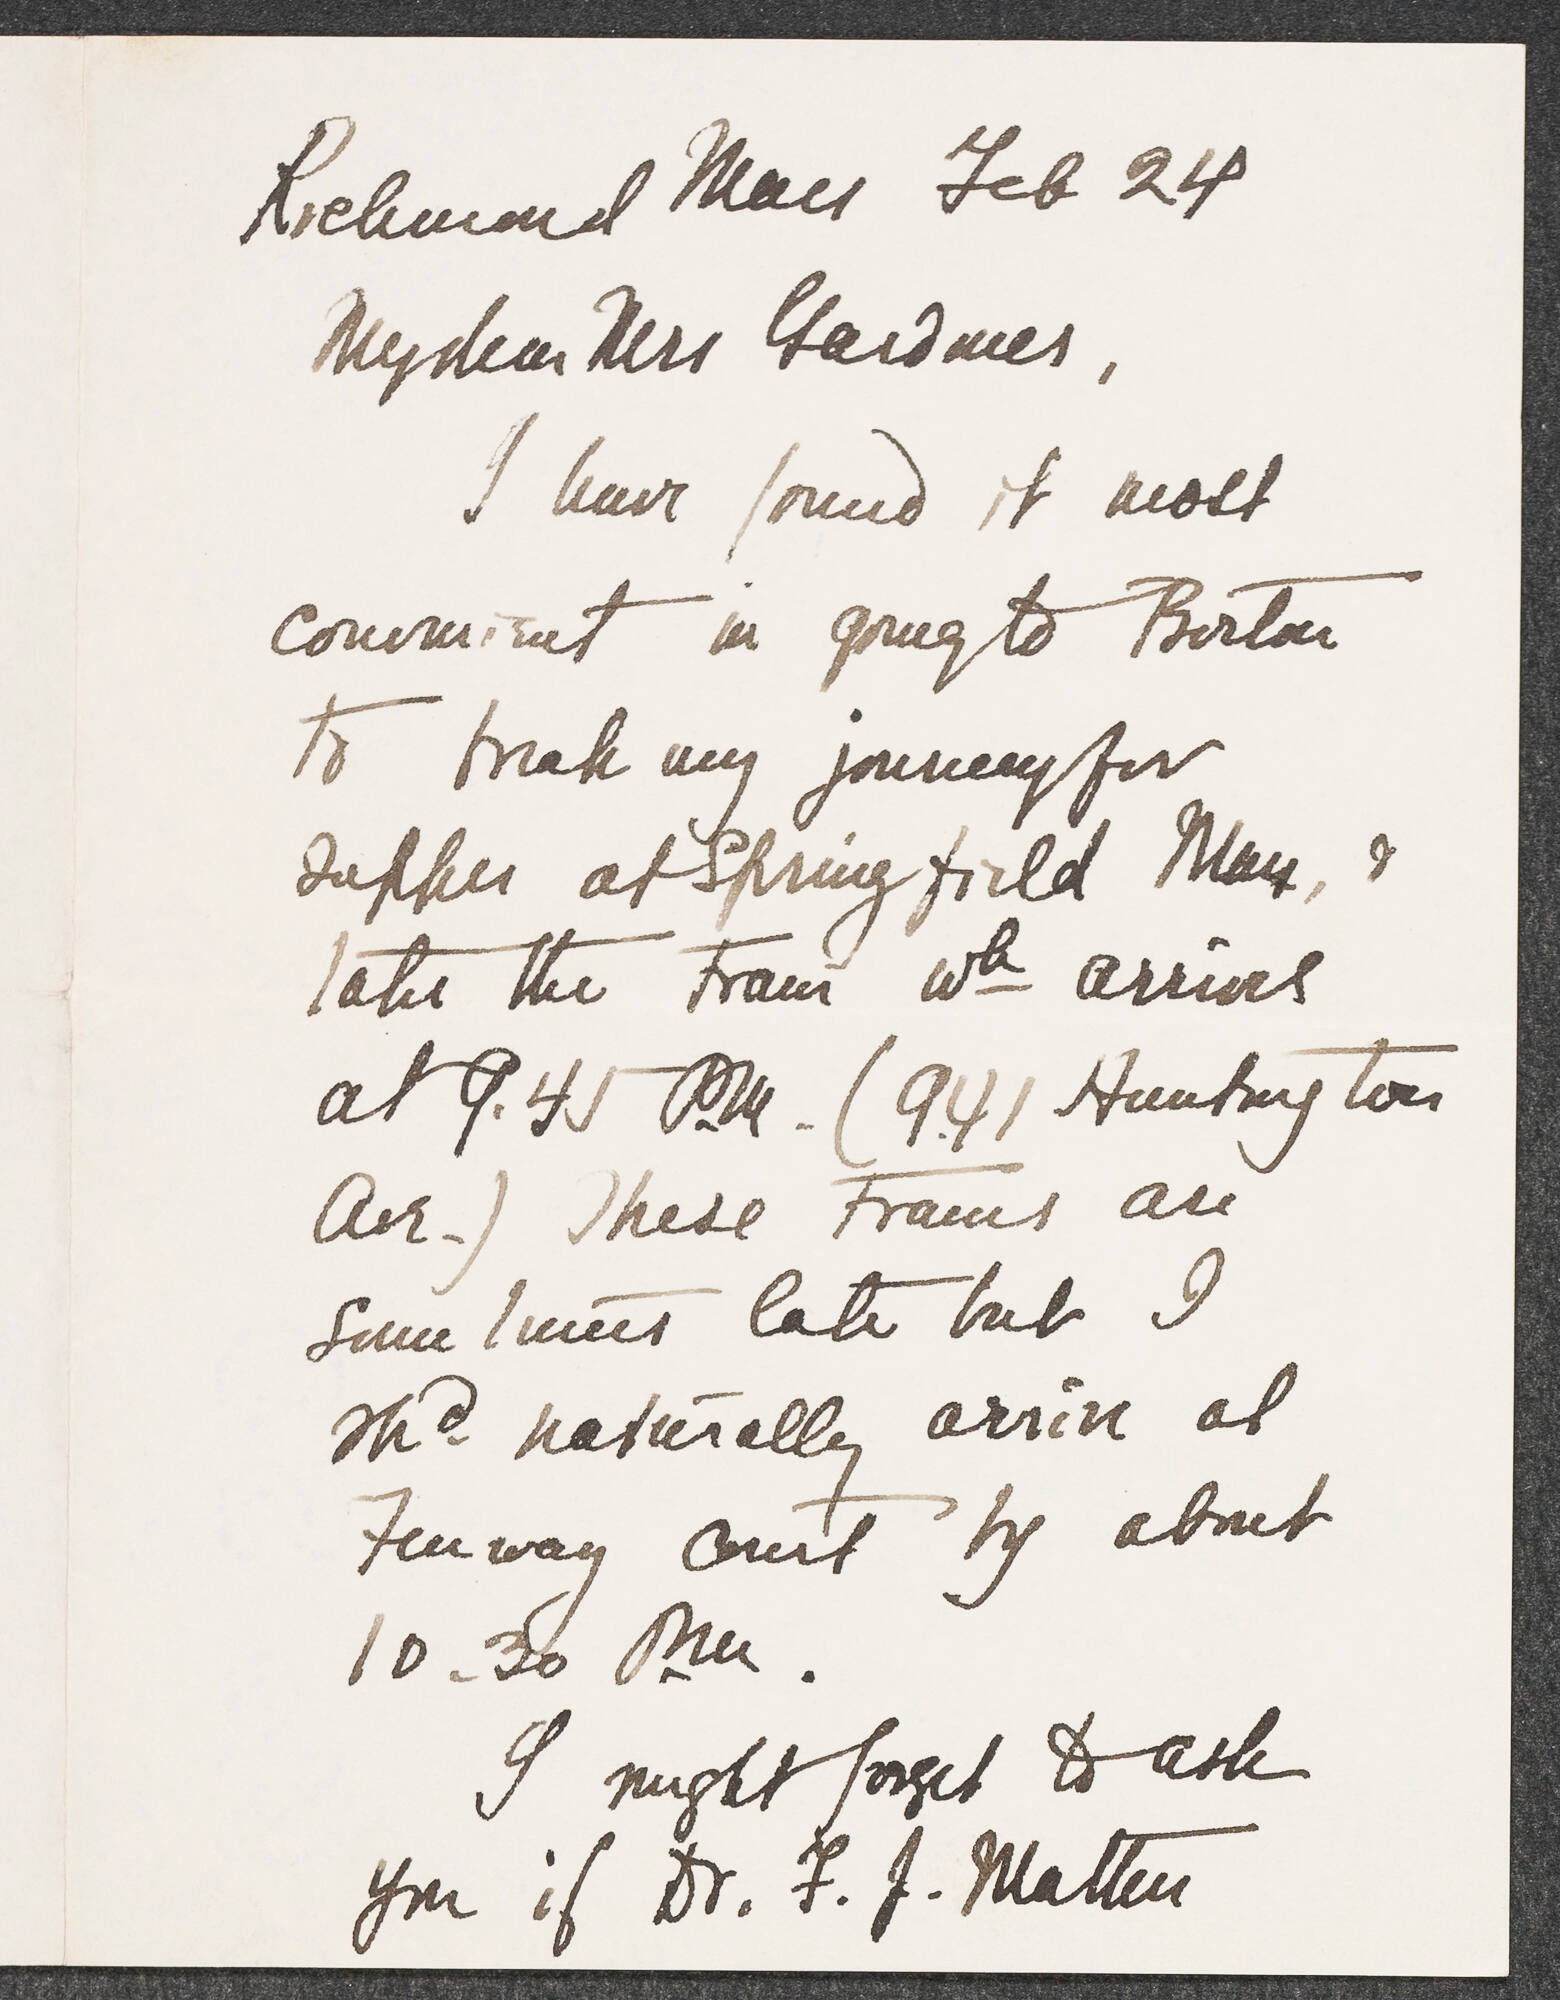 Richmond Mass Feb 24
My dear Mrs Gardner,
I have found it most
convenient in going to Boston
to break my journey for
supper at Springfield Mass, &
take the train wh arrives
at 9.45 P.M. (9.41 Huntington
Ave.) These trains are
sometimes late but I
shd naturally arrive at
Fenway Court by about
10.30 P.M.
I might forget to ask
you if Dr. F. J. Matten